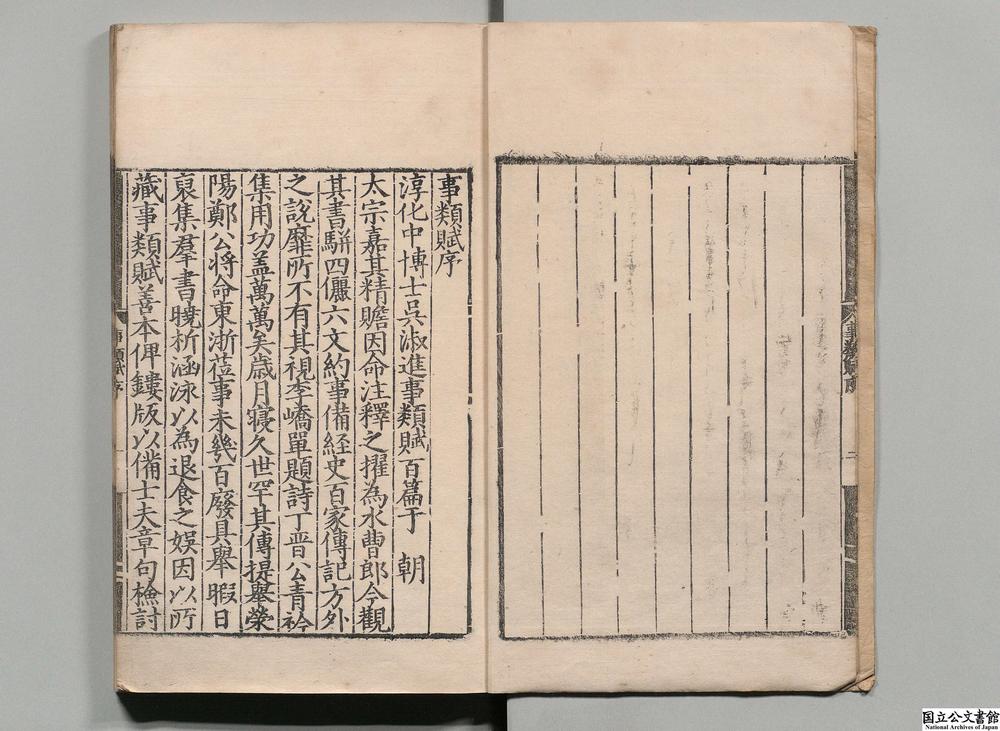 事類賦序
淳化中博士吳淑進事類賦百篇于　朝
太宗嘉其精贍因命注釋之擢為水曹郎今觀
其書駢四儷六文約事備経史百家傳記方外
之說靡所不有其視李嶠單題詩丁晋公青衿
集用功盖萬萬矣歳月寖久世罕其傳提舉榮
陽鄭公将命東浙莅事未幾百廢具舉暇日
裒集羣書曉析涵泳以為退食之娯因以所
藏事類賦善本俾鏤版以備士夫章句檢討
事類賦序
国立公文書館
National Archives of Japan